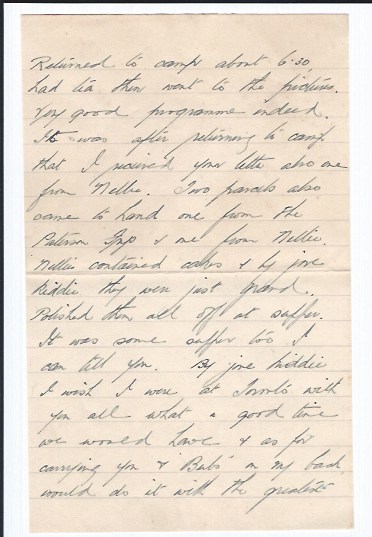 Returned to camp about 6.30
had tea then went to the pictures.
Very good programme indeed.
It was after returning to camp
that I received your letter also one
from Nellie. Two parcels also
came to hand one from the
Paterson & one from Nellie.
Nellies contained cakes & by jove
kiddie they were just grand.
Polished them all off at supper.
It was some supper too I
can tell you. By jove kiddie
I wish I were at with
you all what a good time
we would have & as for
carrying you & Bubs on my back
would do it with the greatest